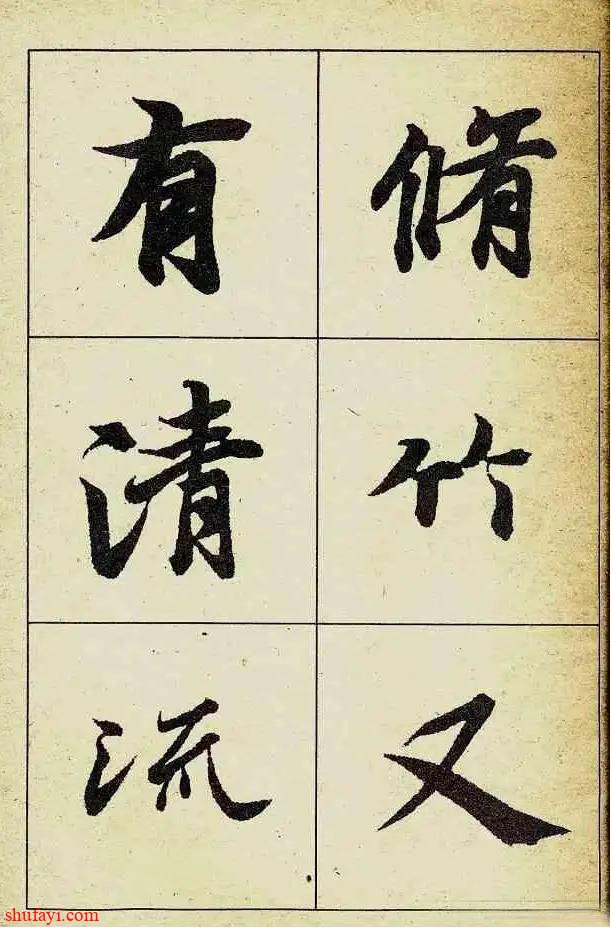 脩竹又
有清流
shufayi.com